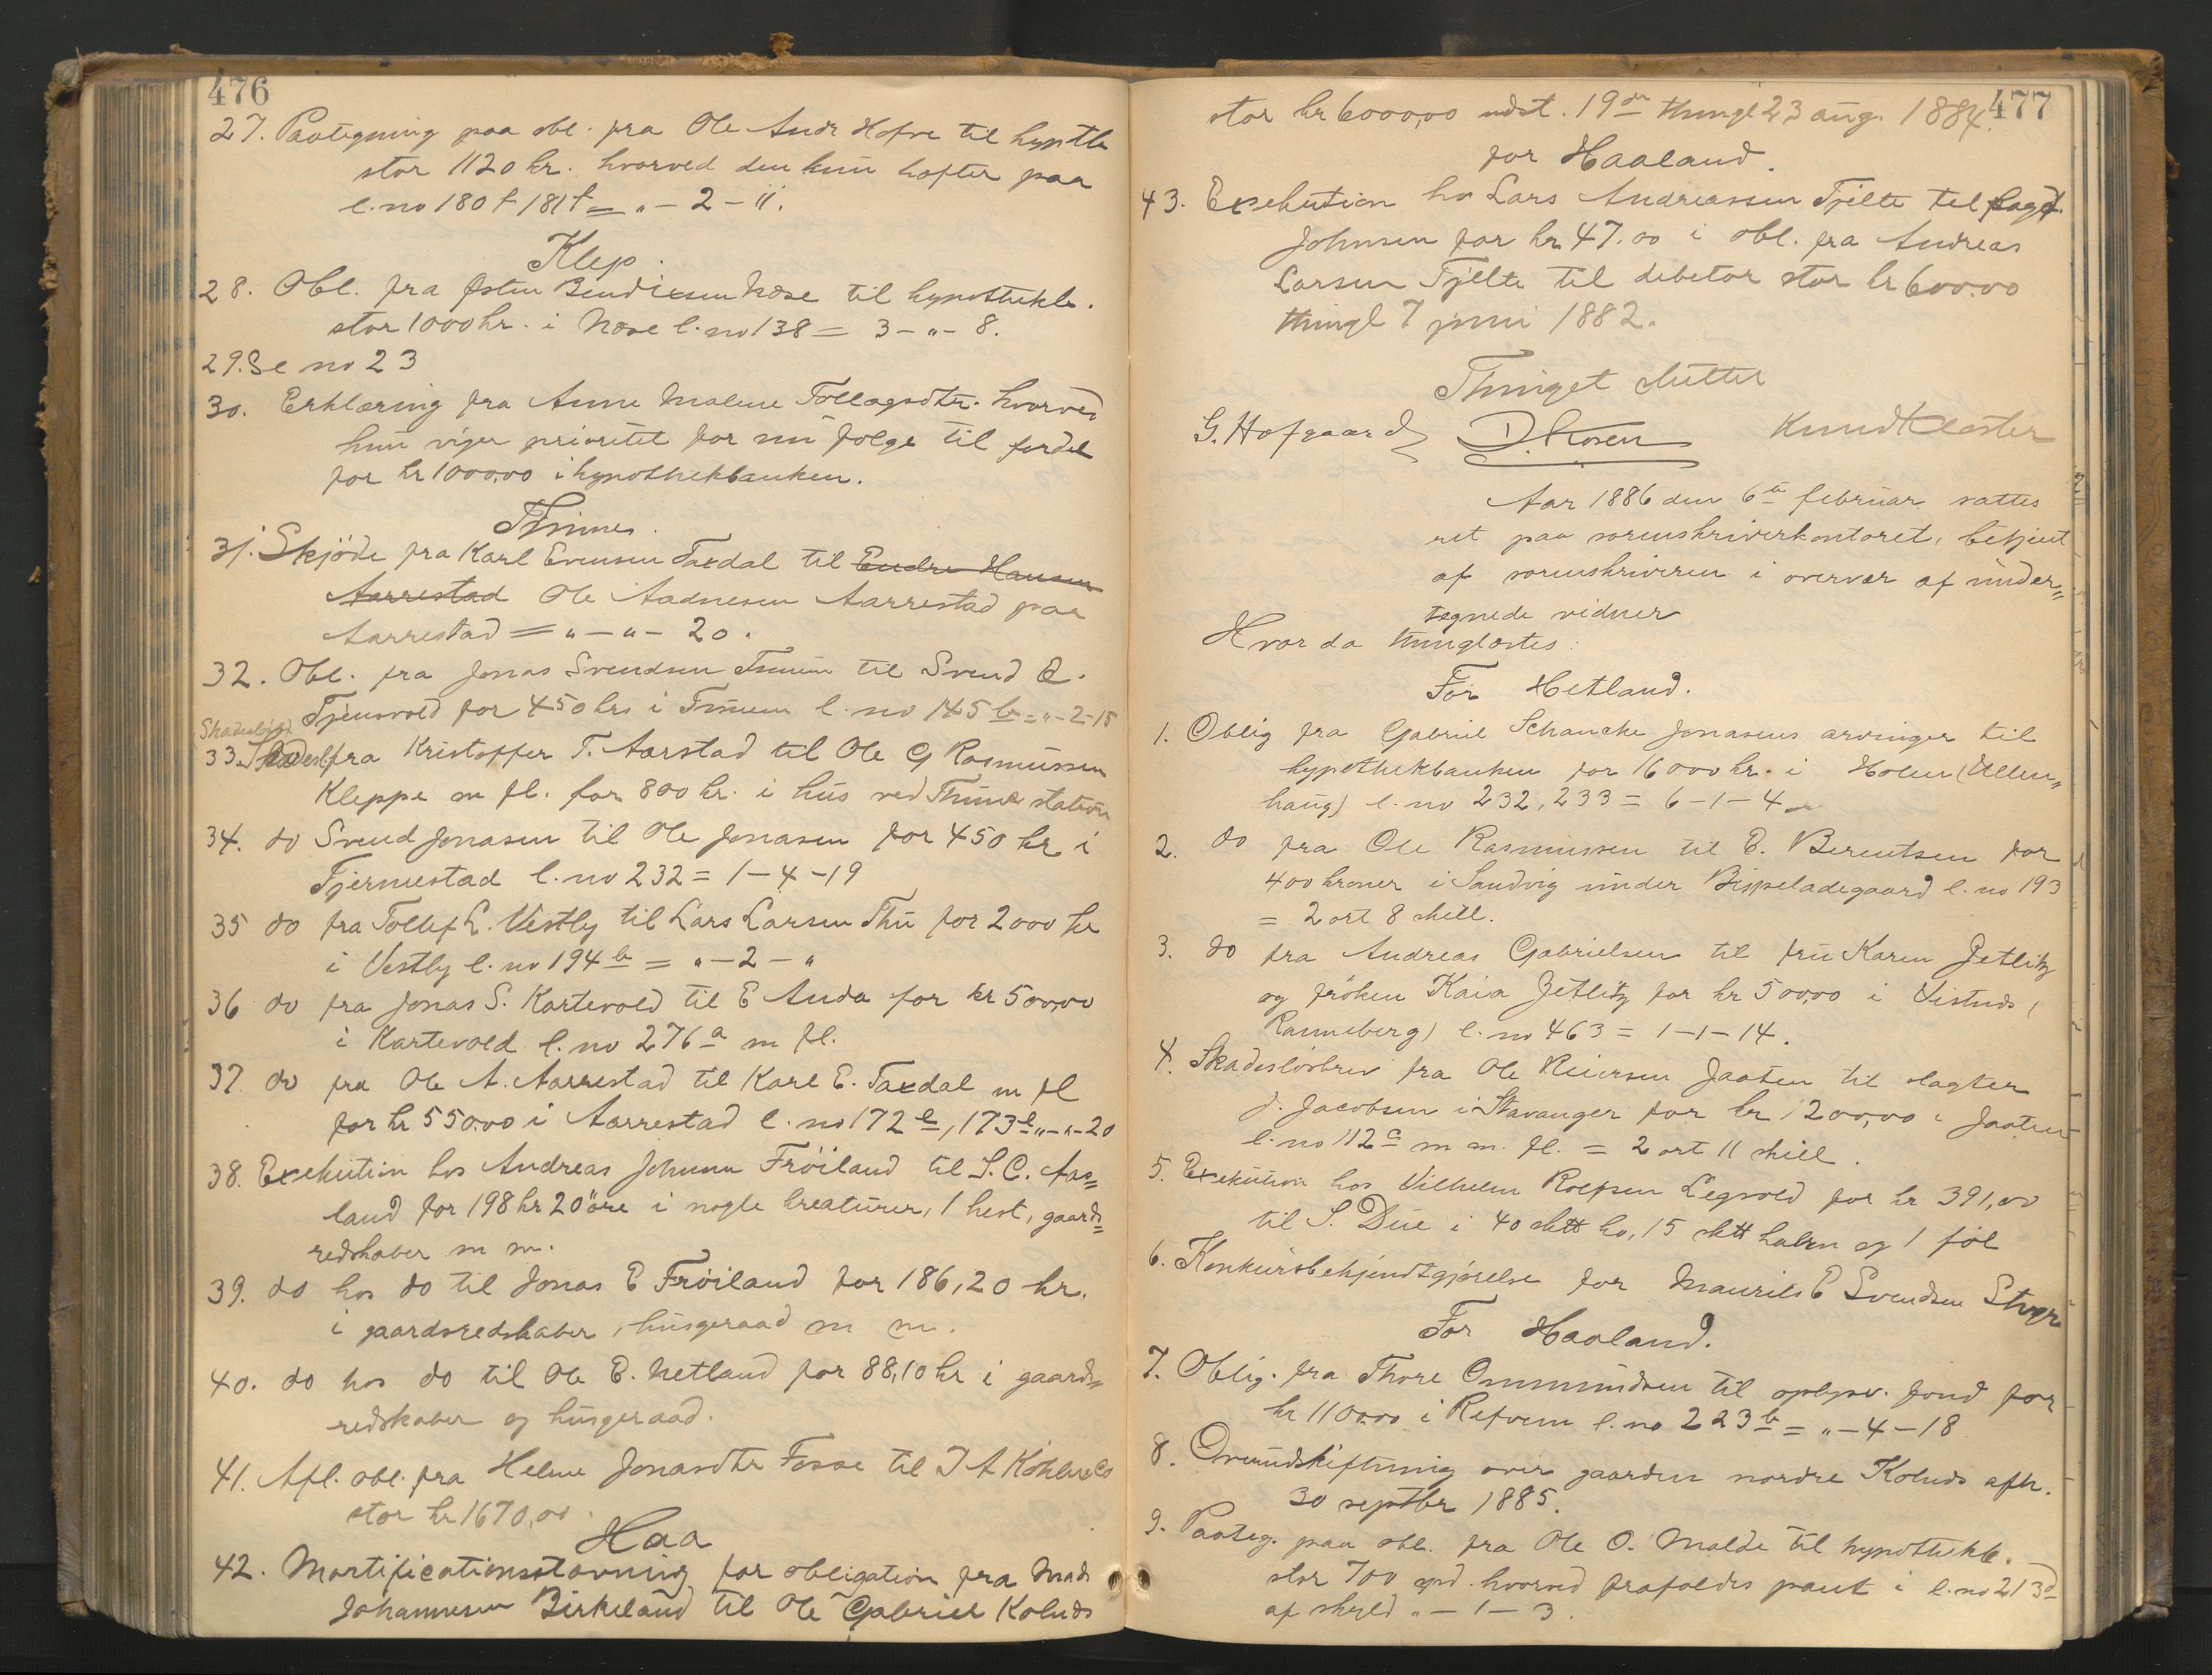 476
27. Paategning paa obl. fra Ole Andr Hofve til hypthb
stor 1120 kr. hvorved den kun hefter paa
l. no 180 f 181 f = „ - 2 - 11.
Klep.
28. Obl. fra Østen Bendixsen Næse til hypothekb.
stor 1000 kr. i Næse l. no 138 = 3 - „ - 8.
29. Se no 23
30. Erklæring fra Anne Malene Tollagsdtr. hvorved
hun viger prioritet for sin folge til fordel
for kr 1000,00 i hypothekbanken.
Thime.
31. Skjöde fra Karl Evensen Taxdal til Endre Hansen
Aarrestad Ole Aadnesen Aarrestad paa
Aarrestad = „ - „ - 20.
32. Obl. fra Jonas Svendsen til Svend E.
Tjensvold for 450 krs i l. no 145 b = „ - 2 - 15
Skadeslösbr
33. fra Kristoffer T. Aarstad til Ole G Rasmussen
Kleppe m fl. for 800 kr. i hus ved Thime station
34. do Svend Jonasen til Ole Jonasen for 450 kr i
Fjermestad l. no 232 = 1 - 4 - 19
35 do fra Tollef L. Vestly til Lars Larsen Thu for 2000 kr
i Vestly l. no 194 b = „ - 2 - „
36 do fra Jonas S. Kartevold til E Anda for kr 500,00
i Kartevold l. no 276 a m fl.
37. do fra Ole A. Aarrestad til Karl E. Taxdal m fl
for kr 550,00 i Aarrestad l. no 172 e, 173 e „ - „ - 20
38. Exekution hos Andreas Johnsen Fröiland til S. C. Aas=
land for 198 kr 20 öre i nogle kreaturer, 1 hest, gaards=
redskaber m m.
39. do hos do til Jonas E Fröiland for 186,20 kr.
i gaardsredskaber, husgeraad m m.
40. do hos do til Ole E. Netland for 88,10 kr i gaards=
redskaber og husgeraad.
41. Afl. obl. fra Helene Jonasdtr Fosse til J A Köhler & Co
stor kr 1670,00.
Haa
42. Mortificationsstævning for obligation fra Mads
Johannesen Birkeland til Ole Gabriel Kolnes
477
stor kr 6000,00 udst. 19de thingl 23 aug. 1884.
for Haaland.
43. Exekution hos Lars Andreassen Tjelte til sagf.
Johnsen for kr 47.00 i obl. fra Andreas
Larsen Tjelte til debetor stor kr 600.00
thingl 7 juni 1882.
Thinget sluttet
G. Hofgaard D. Rosen Knud Kloster
Aar 1886 den 6te februar sattes
ret paa sorenskriverkontoret, betjent
af sorenskriveren i overvær af under=
tegnede vidner
Hvor da thinglæstes:
For Hetland.
1. Oblig fra Gabriel Schancke Jonasens arvinger til
hypothekbanken for 16000 kr. i Holen (Ullen=
haug) l. no 232, 233 = 6 - 1 - 4
2. do fra Ole Rasmussen til E. Berentsen for
400 kroner i Sandvig under Bispeladegaard l. no 193
= 2 ort 8 skill.
3. do fra Andreas Gabrielsen til fru Karen Zetlitz
og fröken Kaia Zetlitz for kr 500,00 i Vistnes (
Ranneberg) l. no 463 = 1 - 1 - 14.
4. Skadeslösbrev fra Ole Reiersen Jaaten til slagter
J. Jacobsen i Stavanger for kr 1200,00 i Jaaten
l. no 112 a m m. fl. = 2 ort 11 skill.
5. Exekution hos Vilhelm Roepsen Legvold for kr 391,00
til S. Due i 40 sktt ho, 15 sktt halm og 1 føl
6. Konkursbekjendtgjørelse for Maurits E Svendsen Stvgr
For Haaland.
7. Oblig. fra Thore Ommundsen til oplysn. fond for
kr 1100,00 i Refvem l. no 223 b = „ - 4 - 18
8. Omudskiftning over gaarden nordre Kolnes afh.
30 septbr 1885.
9. Paateg. paa obl. fra Ole O. Malde til hypothekb.
stor 700 spd. hvorved frafaldes pant i l. no 213 d
af skyld „ - 1 - 3.